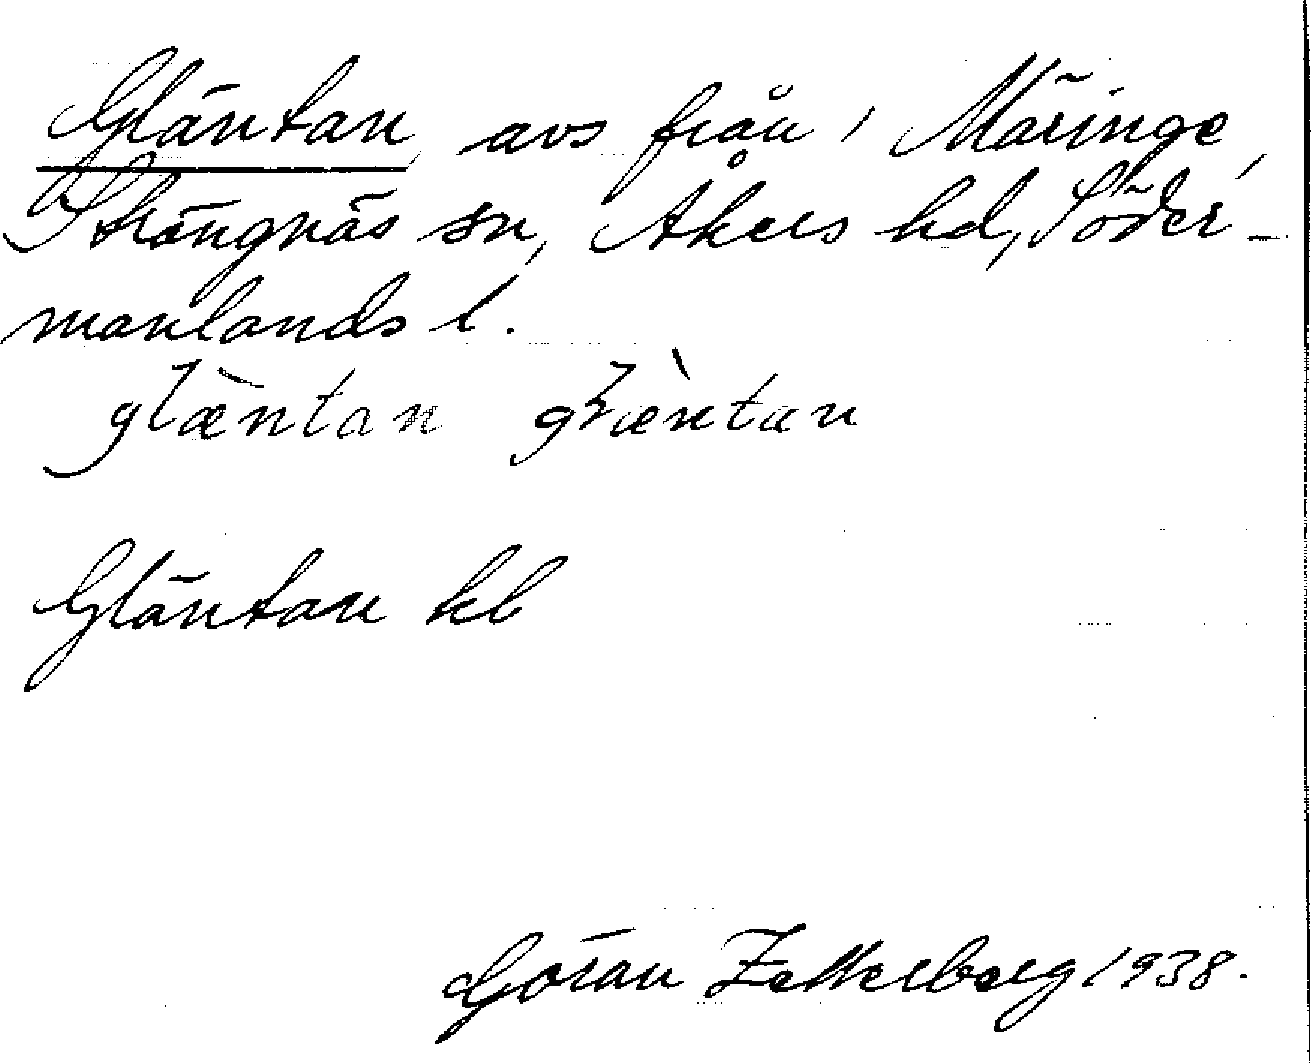 Gläntan, avs från 1 Märinge,
Strängnäs sn, Åkers hd, Söder-
manlands l.
glæ̀ntan gɽæ̀ntan
Gläntan kb
Göran Zetterberg 1938.